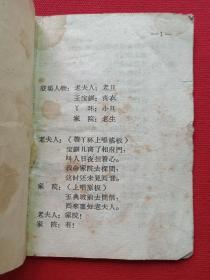 —1—
登场人物：老夫人：老旦
王宝钏：青衣
丫环：小旦
家院：老生
老夫人：（带丫环上唱慢板）
宝钏儿离了相府門，
叫人日夜掛着心。
我命家院去探問，
这时还未見回音。
家院：（上唱慢板）
回来禀知老夫人。
老夫人：家院！
家院：有！